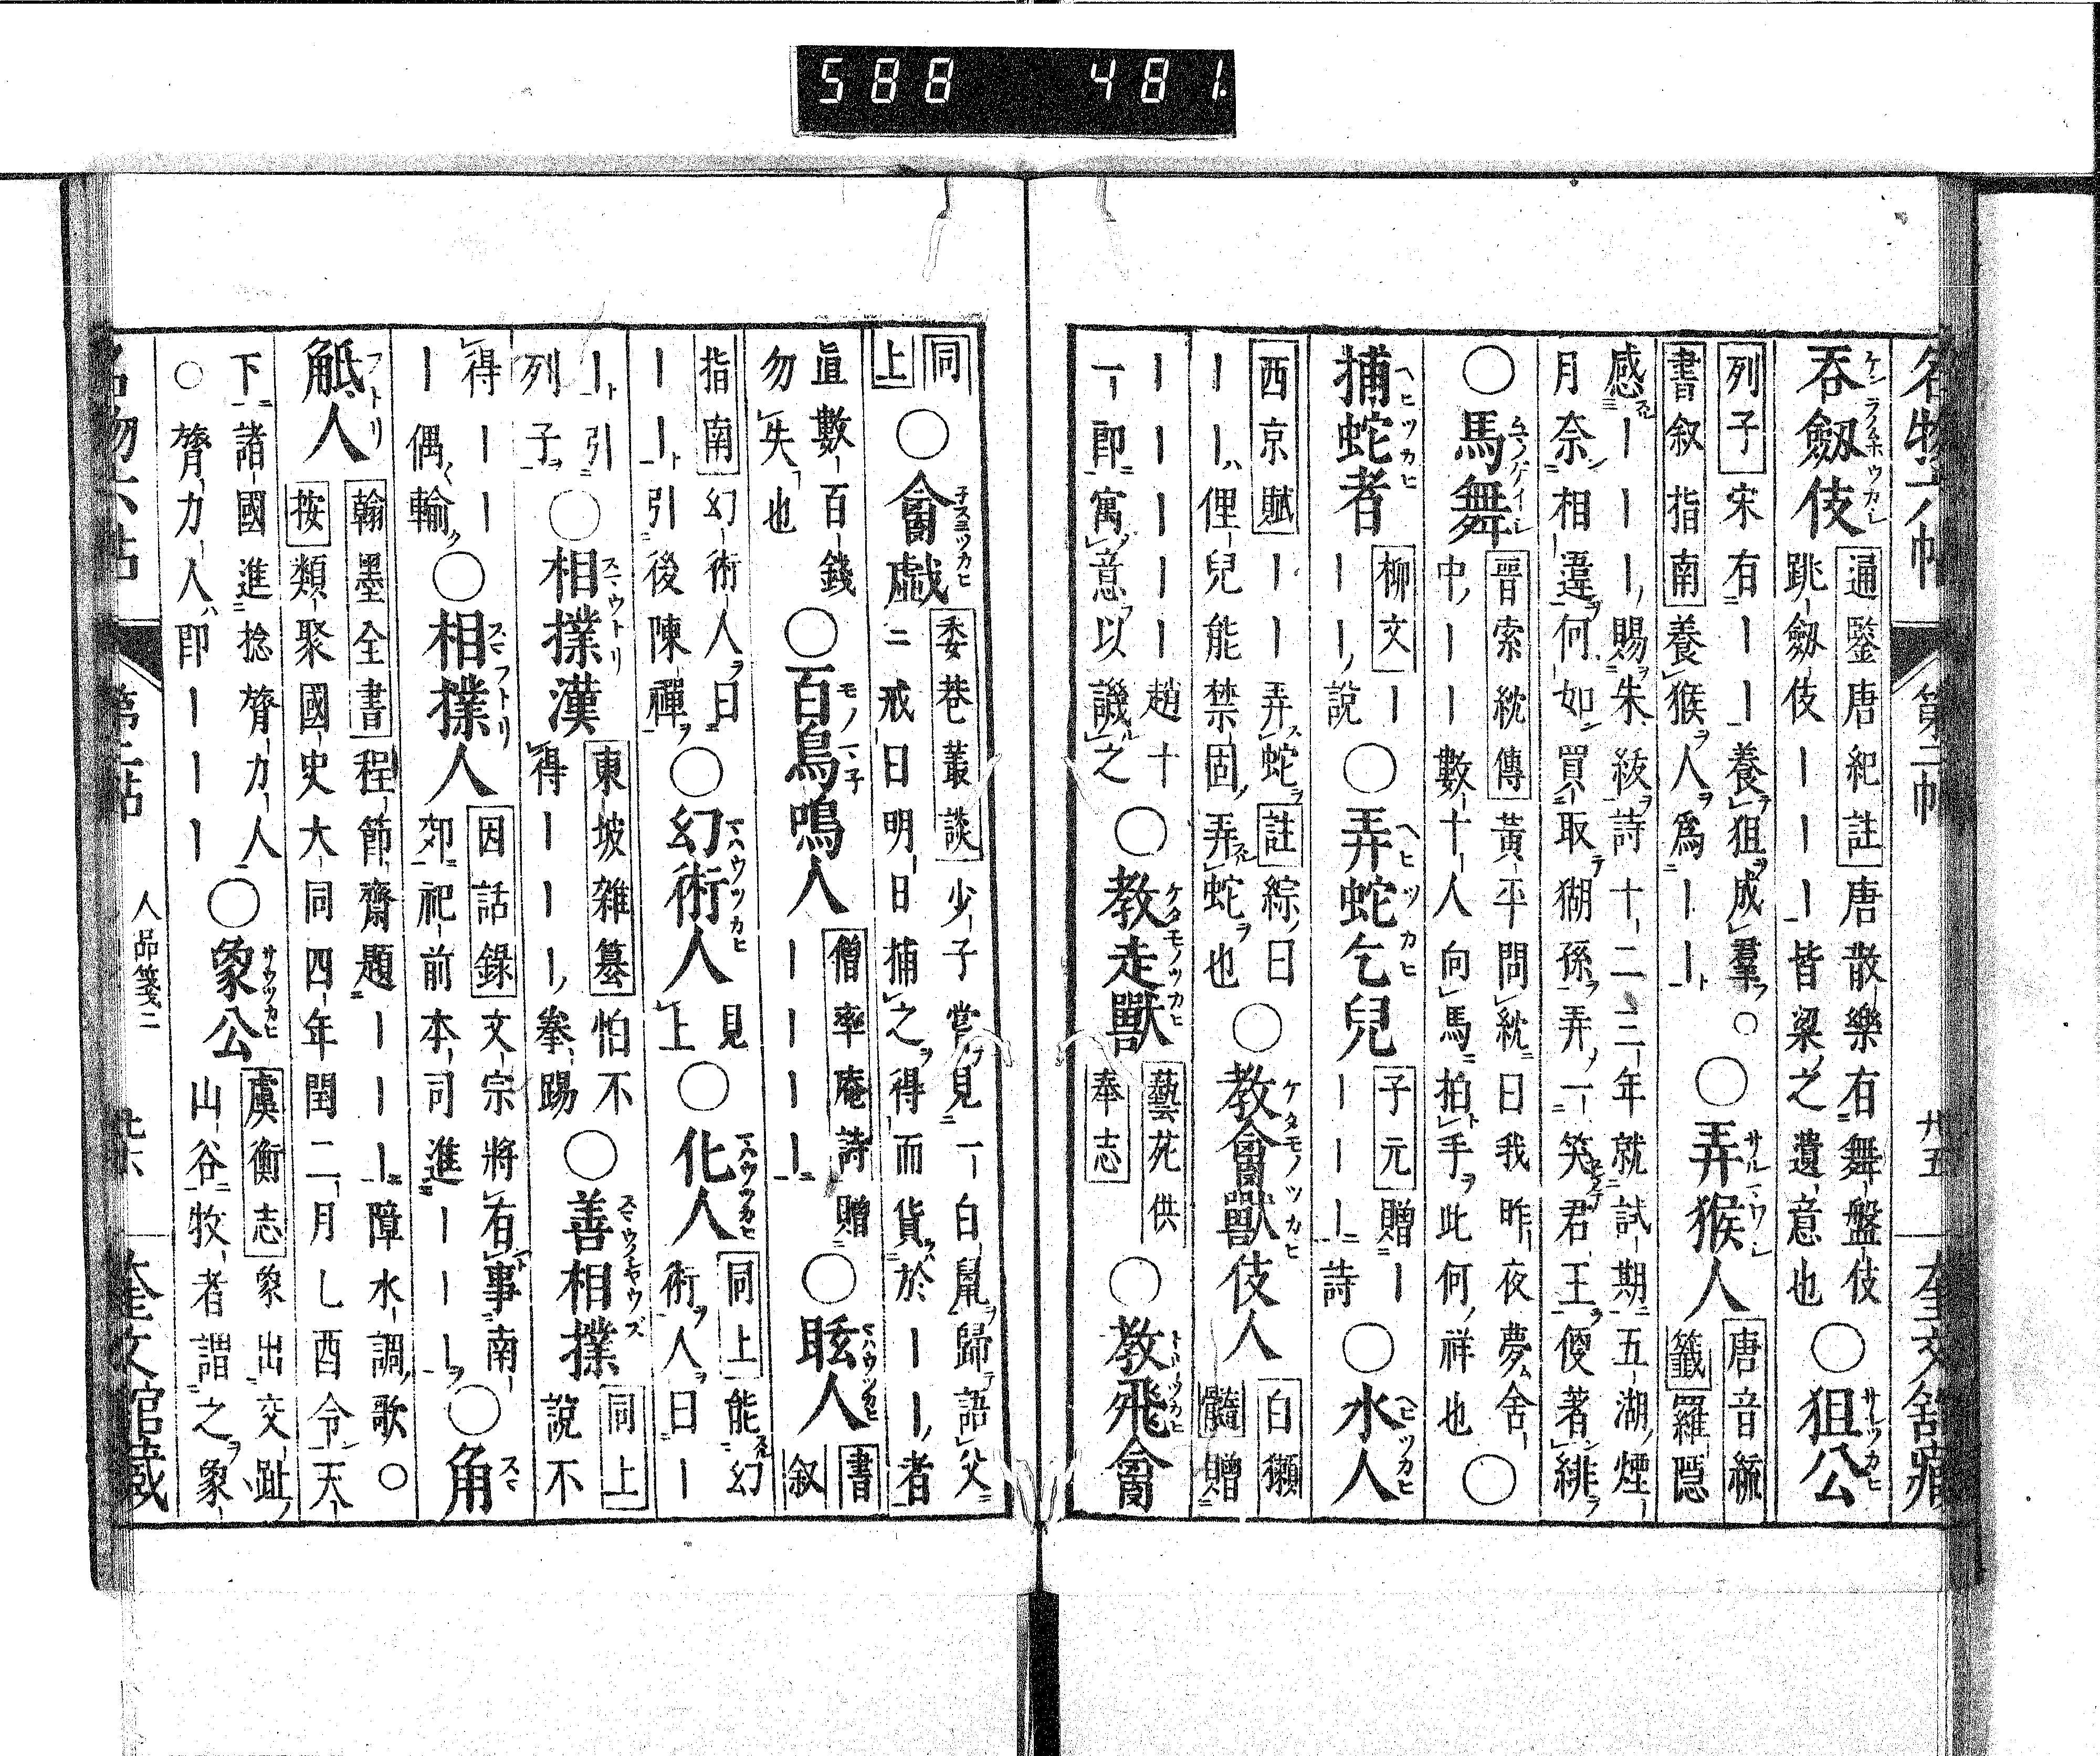 名物六帖 第二帖 廿五 奎文舘藏
吞劔伎
通鑒唐紀註唐散樂有舞盤伎
跳劔伎｜｜｜皆梁之遺意也
○狙公
列子宋有｜｜養狙成羣○
書叙指南養猴人爲｜｜
○弄猴人
唐音統
籖羅隱
感｜｜｜賜朱紱詩十二三年就試期五湖煙
月奈相違何如買取猢孫弄一笑君王便著緋
○馬舞
晉索紞傳黃平問紞曰我昨夜夢舍
中｜｜數十人向馬拍手此何祥也
○
捕蛇者
柳文｜
｜｜說
○弄蛇乞兒
子元贈｜
｜｜｜詩
○水人
西京賦｜｜弄蛇註綜曰
｜｜俚兒能禁固弄蛇也
○教禽獸伎人
白獺
髓贈
｜｜｜｜｜趙十
一即寓意以譏之
○教走獸
藝苑供
奉志
○教飛禽
同
上
○禽戯
委巷叢談少子嘗見一白鼠歸語父
二戒曰明日捕之得而貨於｜｜者
眞數百錢
勿失也
○百鳥鳴人
僧率庵詩贈
｜｜｜｜
○眩人
書
叙
指南幻術人曰
｜｜引後陳禪
○幻術人
見
上
○化人
同上能幻
術人曰｜
｜引
列子
○相撲漢
東坡雜纂怕不
得｜｜｜拳踢
○善相撲
同上
說不
得｜｜
｜偶輸
○相撲人
因話錄文宗將有事南
郊祀前本司進｜｜｜
○角
觝人
翰墨全書程節齋題｜｜｜障水調歌○
按類聚國史大同四年閏二月乚酉令天
下諸國進捻膂力人
○膂力人即｜｜｜
○象公
虞衡志象出交趾
山谷牧者謂之象
名物六帖 第二帖 人品箋二 廿六 奎文館藏